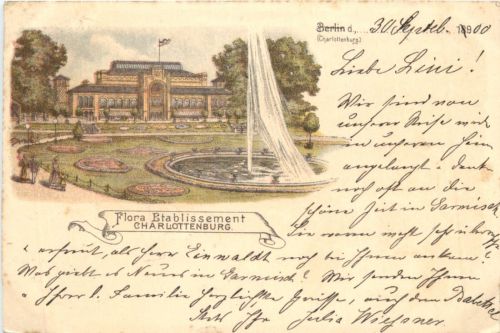 Berlin d., 30 Septbr. 1900
(Charlottenburg)
Liebe Lini!
Wir sind von
unserer Reise wieder
in unserem Heim
angelangt u. denken
noch oft an die
schöne Zeit in Garmisch
Flora Etablissement
CHARLOTTENBURG.
Sie waren wohl sehr
erfreut, als Herr Einwaldt noch bei Ihnen ankam?
Was giebt es Neues in Garmisch? Wir senden Ihnen
u. Ihrer l. Familie herzlichste Grüsse, auch dem
Stets Ihre Julia Wiessner